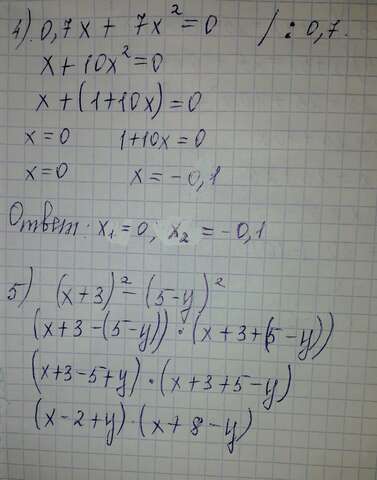 4). 0,7x + 7x² = 0 / : 0,7.
x + 10x² = 0
x + (1+10x) = 0
x = 0 1+10x = 0
x = 0 x = -0,1
Ответ: x₁ = 0; x₂ = -0,1
5) (x+3)² - (5-y)²
(x+3-(5-y)) · (x+3+(5-y))
(x+3-5+y) · (x+3+5-y)
(x-2+y) · (x+8-y)